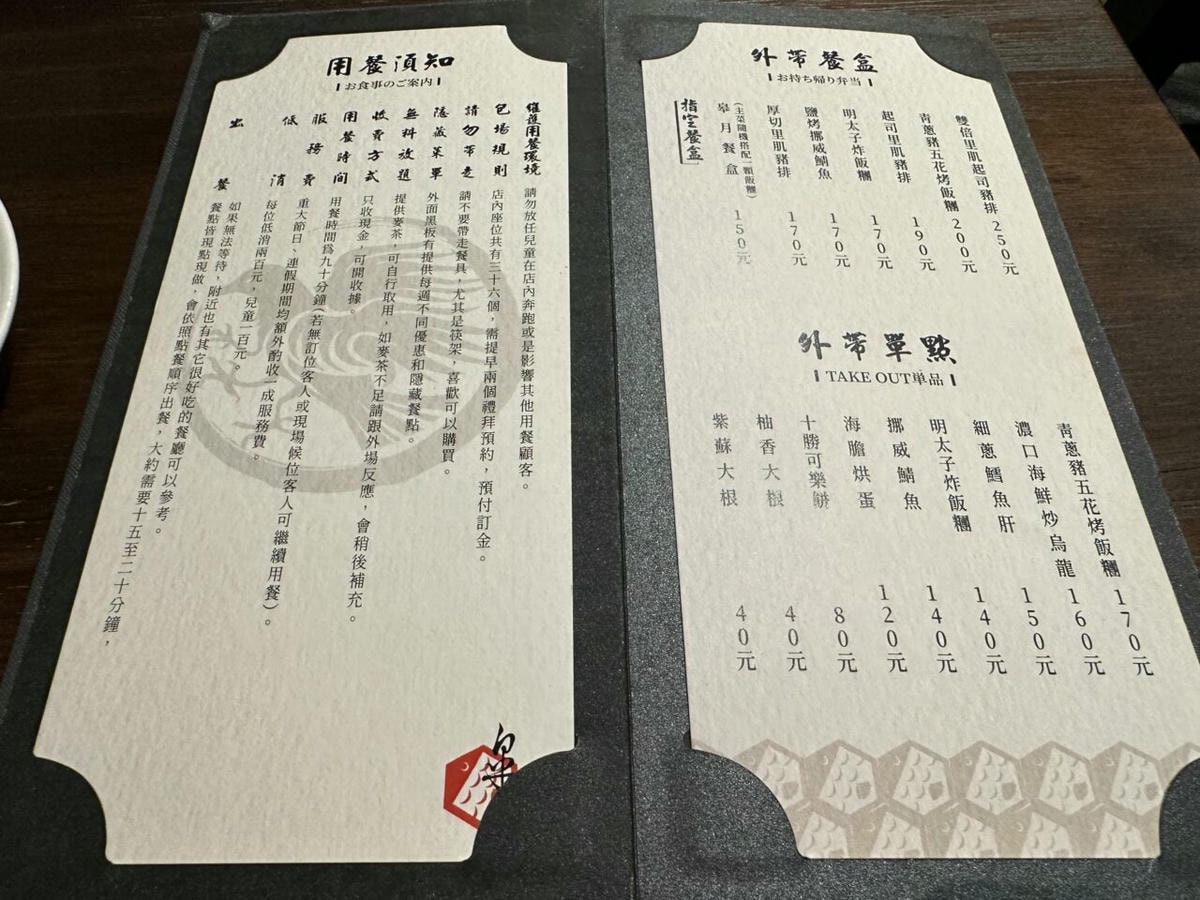 外帶餐盒
お持ち帰り弁当
雙倍里肌起司豬排 250元
青蔥豬五花烤飯糰 200元
起司里肌豬排 190元
明太子炸飯糰 170元
鹽烤挪威鯖魚 170元
厚切里肌豬排 170元
(主菜隨機搭配一顆飯糰)
皋月餐盒 150元
指定餐盒
外帶單點
TAKE OUT単品
青蔥豬五花烤飯糰 170元
濃口海鮮炒烏龍 160元
細蔥鱈魚肝 150元
明太子炸飯糰 140元
挪威鯖魚 140元
海膽烘蛋 120元
十勝可樂餅 80元
柚香大根 40元
紫蘇大根 40元
用餐須知
お食事のご案内
維護用餐環境 請勿放任兒童在店內奔跑或是影響其他用餐顧客。
包場規則 店內座位共有三十六個,需提早兩個禮拜預約,預付訂金。
請勿帶走 請不要帶走餐具,尤其是筷架,喜歡可以購買。
隱藏菜單 外面黑板有提供每週不同優惠和隱藏餐點。
無料放題 提供麥茶,可自行取用,如麥茶不足請跟外場反應,會稍後補充。
收費方式 只收現金,可開收據。
用餐時間 用餐時間爲九十分鐘(若無訂位客人或現場候位客人可繼續用餐)。
服務費 重大節日、連假期間均額外酌收一成服務費。
低消 每位低消兩百元,兒童一百元。
出餐 餐點皆現點現做,會依照點餐順序出餐,大約需要十五至二十分鐘,
如果無法等待,附近也有其它很好吃的餐廳可以參考。